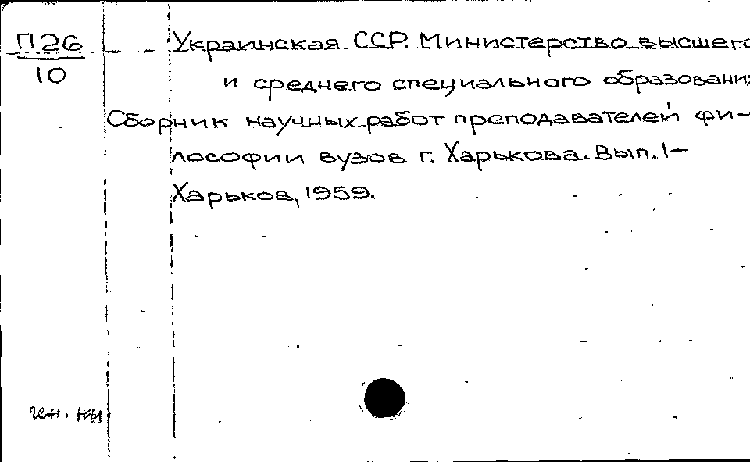 П26
10
Украинская ССР. Министерство высшего
и среднего специального образовани
Сборник научных работ преподавателей фи-
лософии вузов г. Харькова. Вып. 1-
Харьков, 1959.